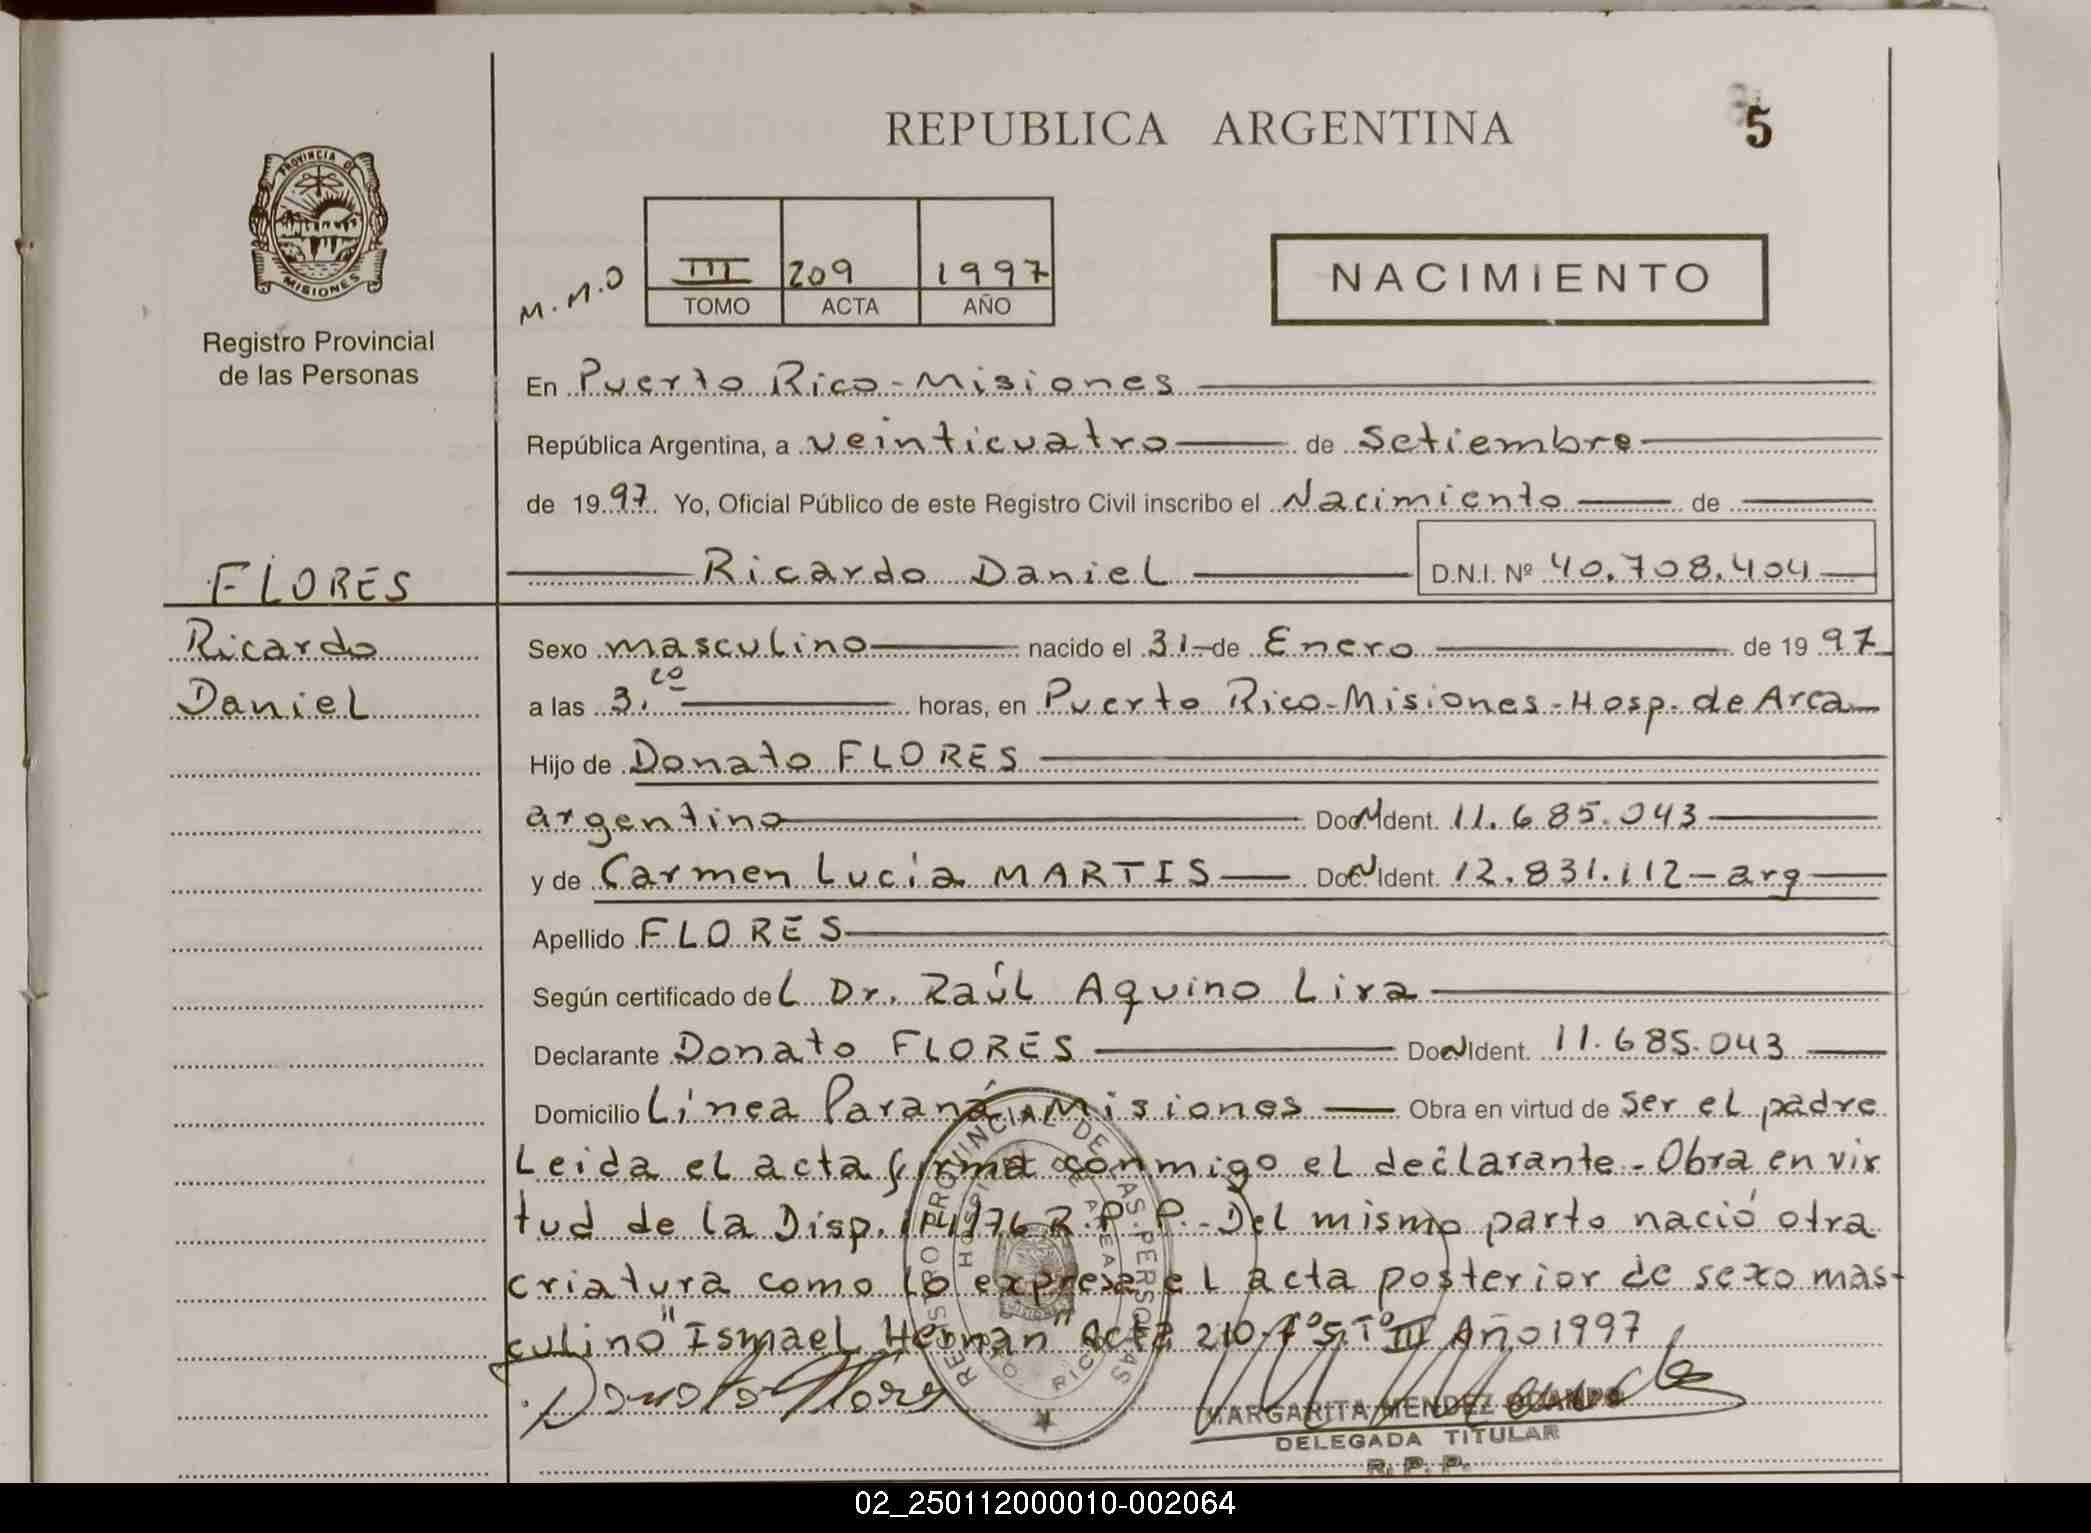 REPUBLICA ARGENTINA
5
PROVINCIA DE
MISIONES
Registro Provincial
de las Personas
M.M.O
III 209 1997
TOMO ACTA AÑO
NACIMIENTO
En Puerto Rico-Misiones
República Argentina, a veinticuatro de Setiembre
de 1997 Yo, Oficial Público de este Registro Civil inscribo el Nacimiento de
FLORES
Ricardo Daniel D.N.I. Nº 40.708.404
Ricardo
Daniel
Sexo masculino nacido el 31 de Enero de 1997
a las 3. horas, en Puerto Rico-Misiones-Hosp. de Area
Hijo de Donato FLORES
argentino Doc. Ident. 11.685.043
y de Carmen Lucía MARTIS Doc. Ident. 12.831.112-arg
Apellido FLORES
Según certificado del Dr. Raúl Aquino Lira
Declarante Donato FLORES Doc. Ident. 11.685.043
Domicilio Línea Paraná Misiones Obra en virtud de ser el padre
Leida el acta firma conmigo el declarante-Obra en vir
tud de la Disp. R.P.P.-Del mismo parto nació otra
criatura como lo expresa el acta posterior de sexo mas-
culino "Ismael Hernan" Acta 210-Fº5 Tº III Año 1997
Donato Flores
REGISTRO PROVINCIAL DE LAS PERSONAS
HOSPITAL DE AREA
PTO. RICO
MARGARITA MENDEZ OCAMPO
DELEGADA TITULAR
R.P.P.
02_250112000010-002064